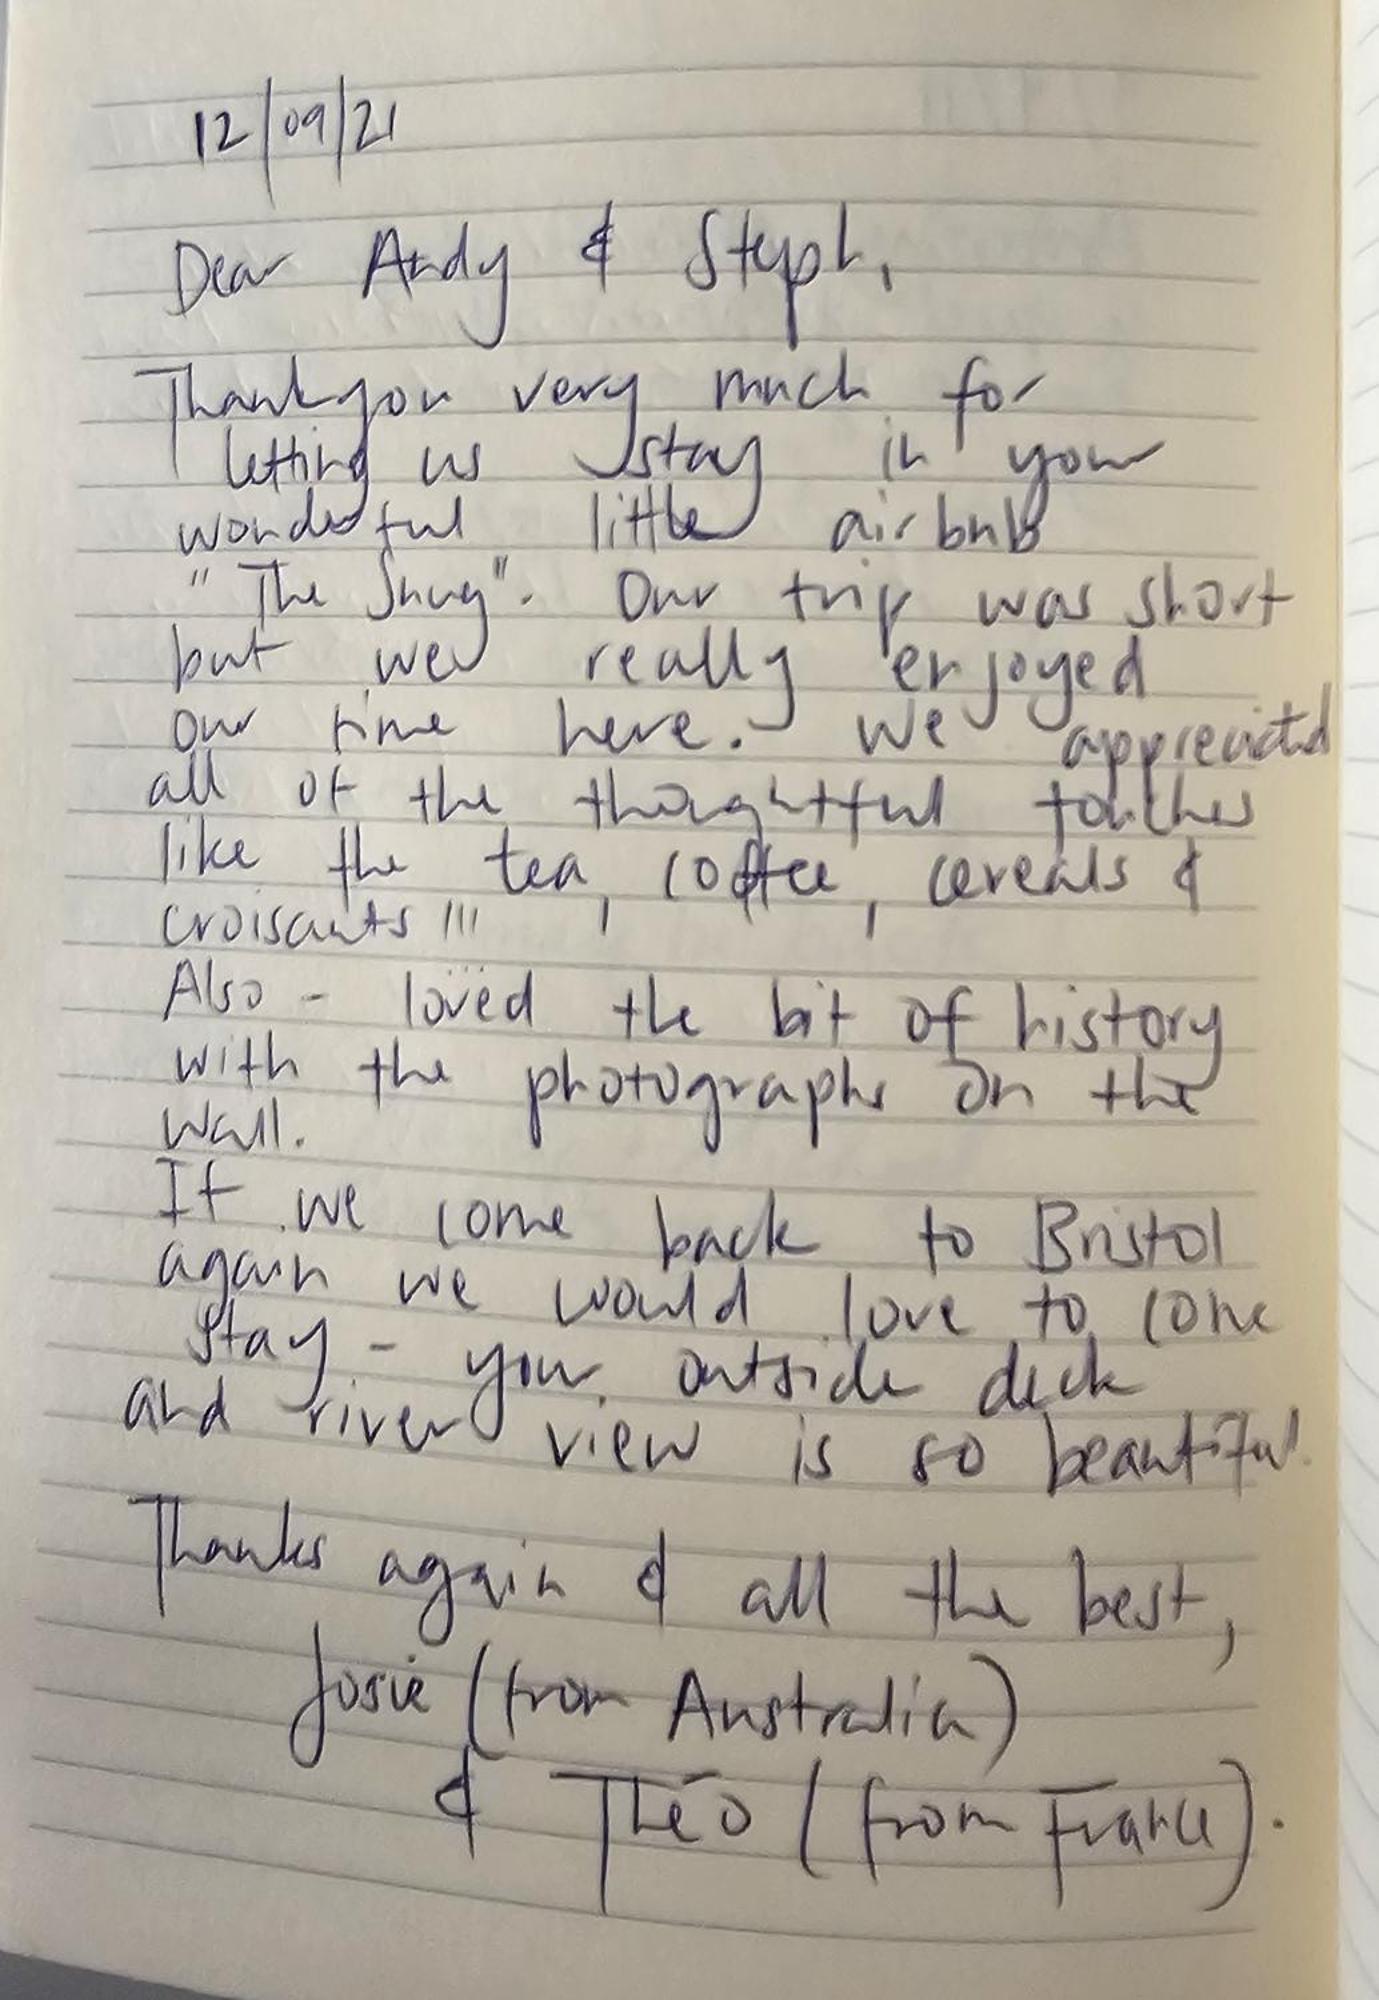 12/09/21
Dear Andy & Steph,
Thankyou very much for
letting us stay in your
wonderful little airbnb
"The Snug". Our trip was short
but we really enjoyed
our time here. We appreciated
all of the thoughtful touches
like the tea, coffee, cereals &
croisants!!!
Also - loved the bit of history
with the photographs on the
wall.
If we come back to Bristol
again we would love to come
stay - your outside deck
and river view is so beautiful.
Thanks again & all the best,
Josie (from Australia)
& Théo (from France).